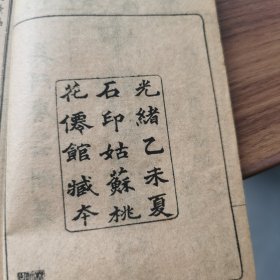 光緒乙未夏
石印姑蘇桃
花僊館臧本